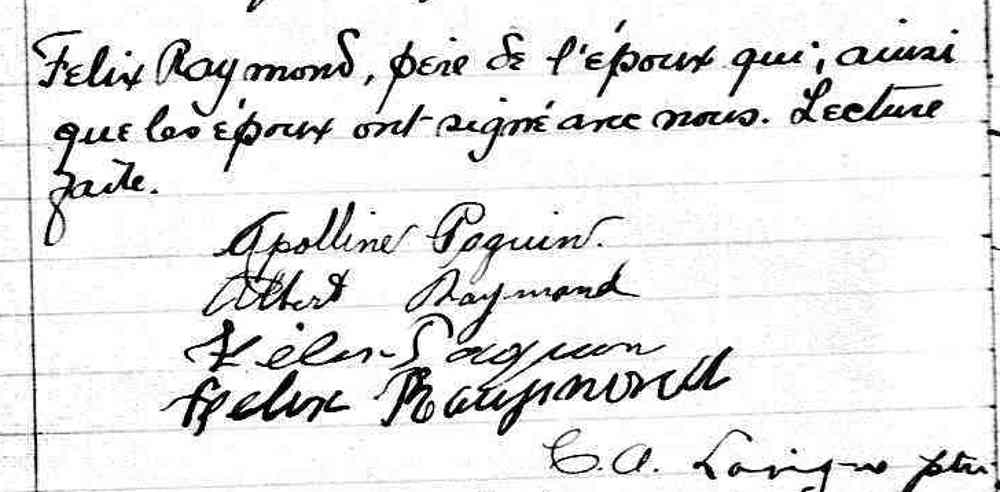 Felix Raymond, père de l'époux qui, ainsi
que les époux ont signé avec nous. Lecture
faite.
Apolline Paquin.
Albert Raymond
Félix Paquin
Felix Raymond
C. A. Lavigne ptre